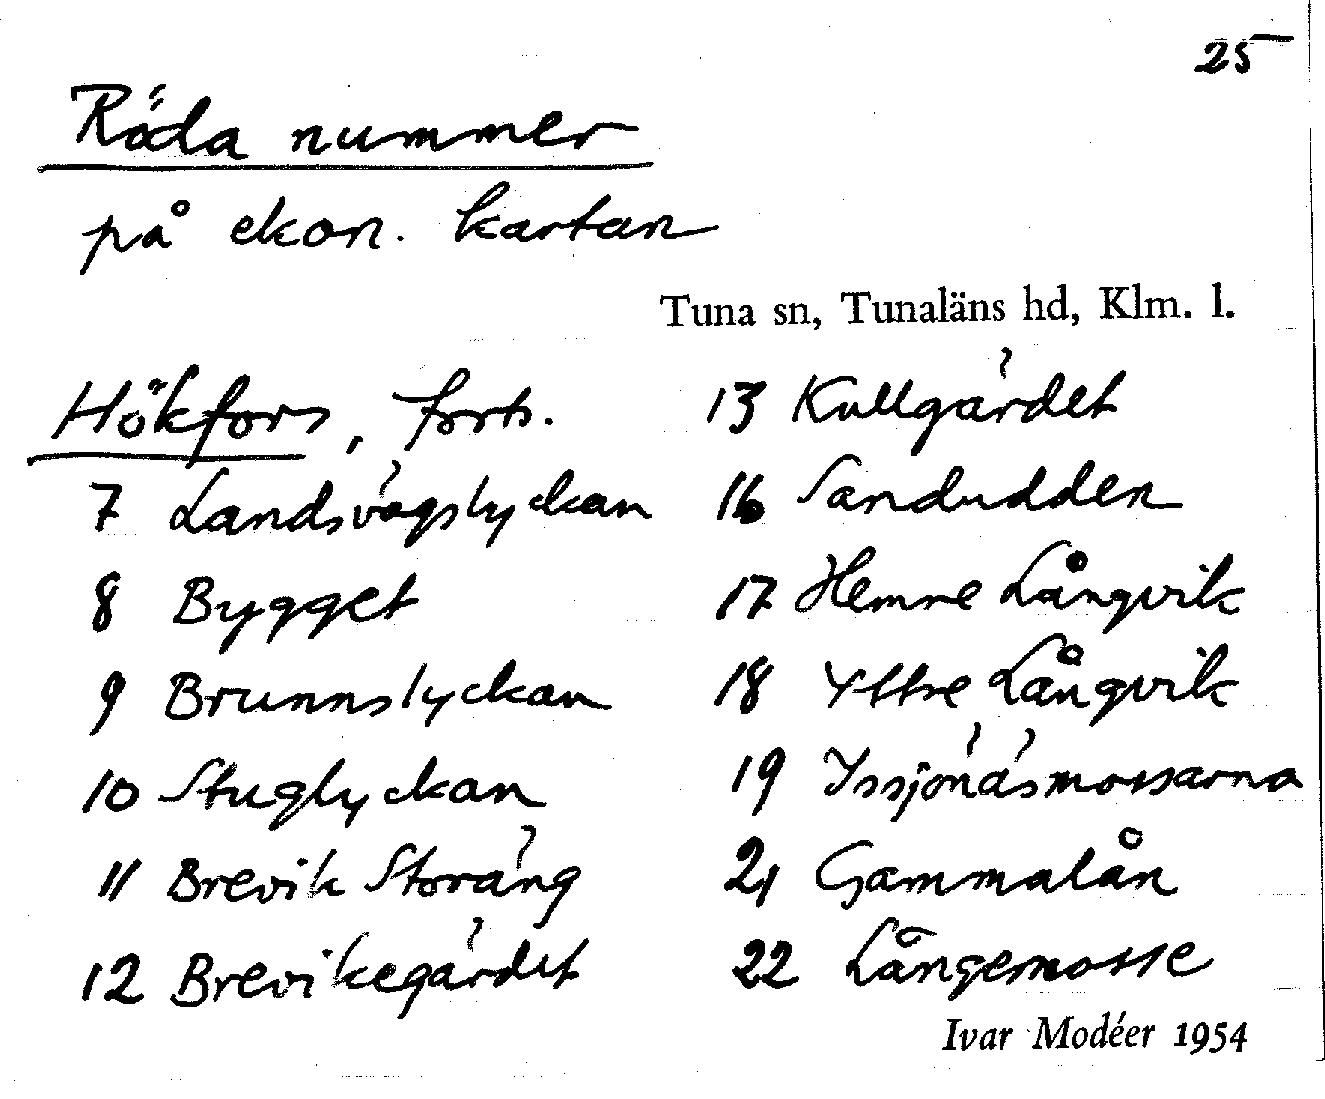 25
Röda nummer
på ekon. kartan
Tuna sn, Tunaläns hd, Klm. l.
Hökfors, forts.
7 Landsvägslyckan
8 Bygget
9 Brunnslyckan
10 Stuglyckan
11 Brevik Storäng
12 Brevikegärdet
13 Kullgärdet
16 Sandudden
17 Hemre Långvik
18 Yttre Långvik
19 Yssjönäsmossarna
21 Gammalån
22 Långemosse
Ivar Modéer 1954